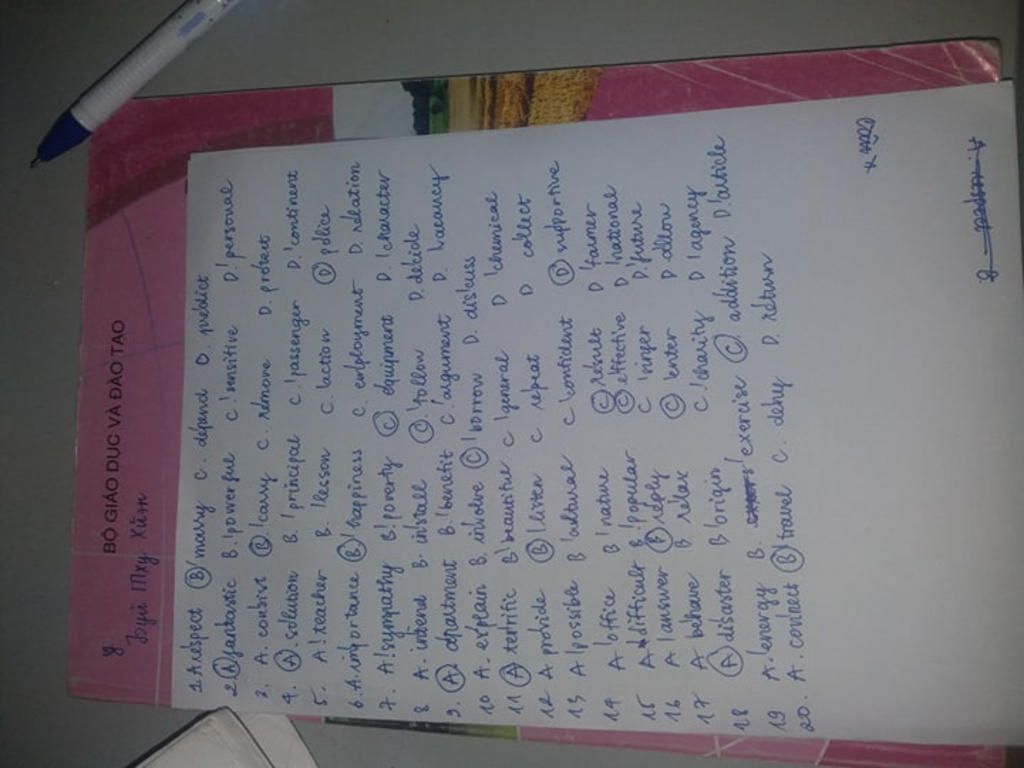 BỘ GIÁO DỤC VÀ ĐÀO TẠO
y
1. A respect B 'mary C. depend D. predict
2 A fantastic B. 'powerful C 'sensitive D 'personal
3. A. consist B. 'cary C. remove D. protect
4. A. solution B. 'principal C. 'passenger D. 'continent
5. A 'teacher B. 'lesson C. 'action D police
6. A. importance B 'happiness C. employment D. relation
7. A 'sympathy B. 'poverty C equipment D. 'character
8 A. intend B. install C 'follow D. decide
9. A apartment B. 'benefit C. 'argument D.
10 A. explain B. involve C 'borrow D. discuss
11 A terrific B 'beautiful C 'general D 'chemical
12 A provide B 'listen C repeat D collect
13 A 'possible B C 'confident D supportive
14 A 'office B 'nature C result D 'farmer
15 A difficult B 'popular C effective D 'national
16 A 'answer B reply C 'singer D. future
17 A behave B relax C 'enter D allow
18 A disaster B 'origin C 'charity D 'agency
19 A. 'energy B. 'exercise C addition D 'article
20. A. connect B 'travel C. deny D. return